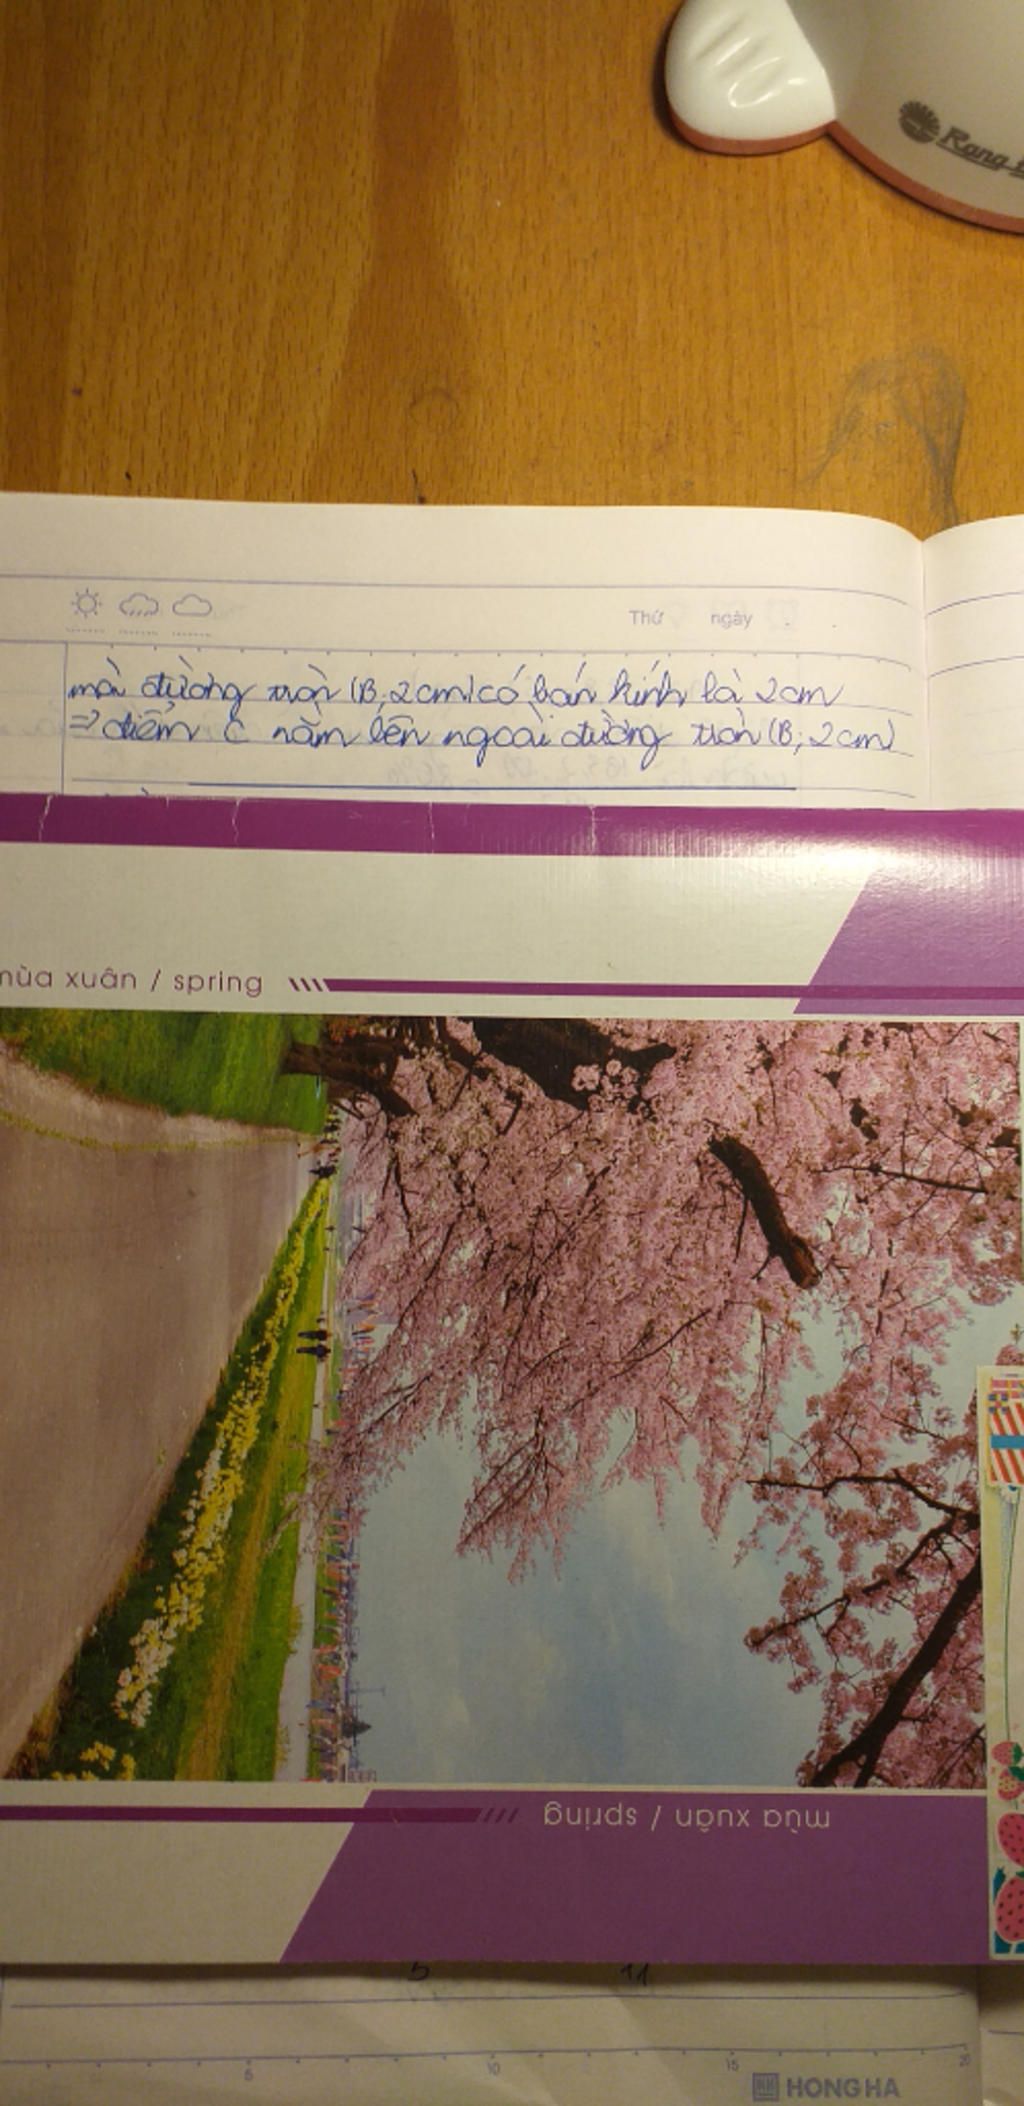 Rang
Thứ ngày
mà đường tròn (B; 2cm) có bán kính là 2cm
=> điểm C nằm bên ngoài đường tròn (B; 2cm)
mùa xuân / spring
mùa xuân / spring
5 11
5 10 15 20
HONG HA